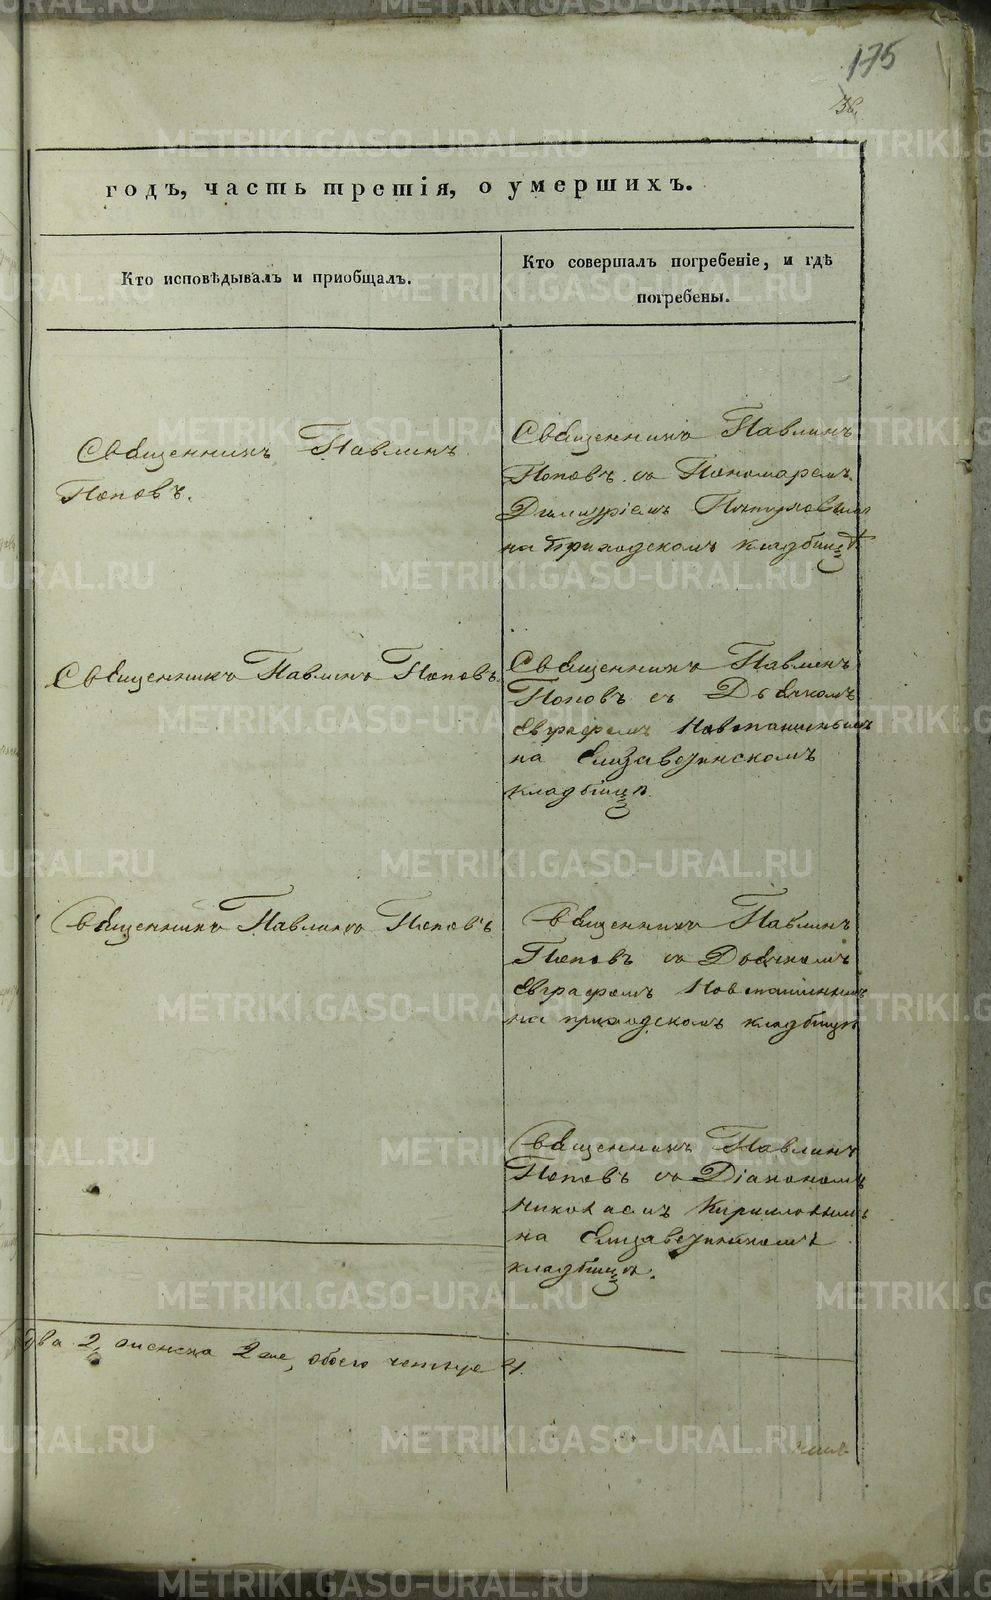 175
36.
годъ, часть третія, о умершихъ.
Кто исповѣдывалъ и приобщалъ.
Кто совершалъ погребеніе, и гдѣ
погребены.
Священникъ Павлинъ
Поповъ.
Священникъ Павлинъ
Поповъ съ Пономаремъ
Димитріемъ
на Приходскомъ кладбищѣ
Священникъ Павлинъ Поповъ
Священникъ Павлинъ
Поповъ съ Дьячкомъ
Евграфомъ Новопашиннымъ
на Елизаветинскомъ
кладбищѣ.
Священникъ Павлинъ Поповъ
Священникъ Павлинъ
Поповъ съ Дьячкомъ
Евграфомъ Новопашиннымъ
на приходскомъ кладбищѣ
Священникъ Павлинъ
Поповъ съ Діакономъ
Николаемъ Кирилловымъ
на Елизаветинскомъ
кладбищѣ.
два 2, женска 2 две, обоего четыре 4.
METRIKI.GASO-URAL.RU